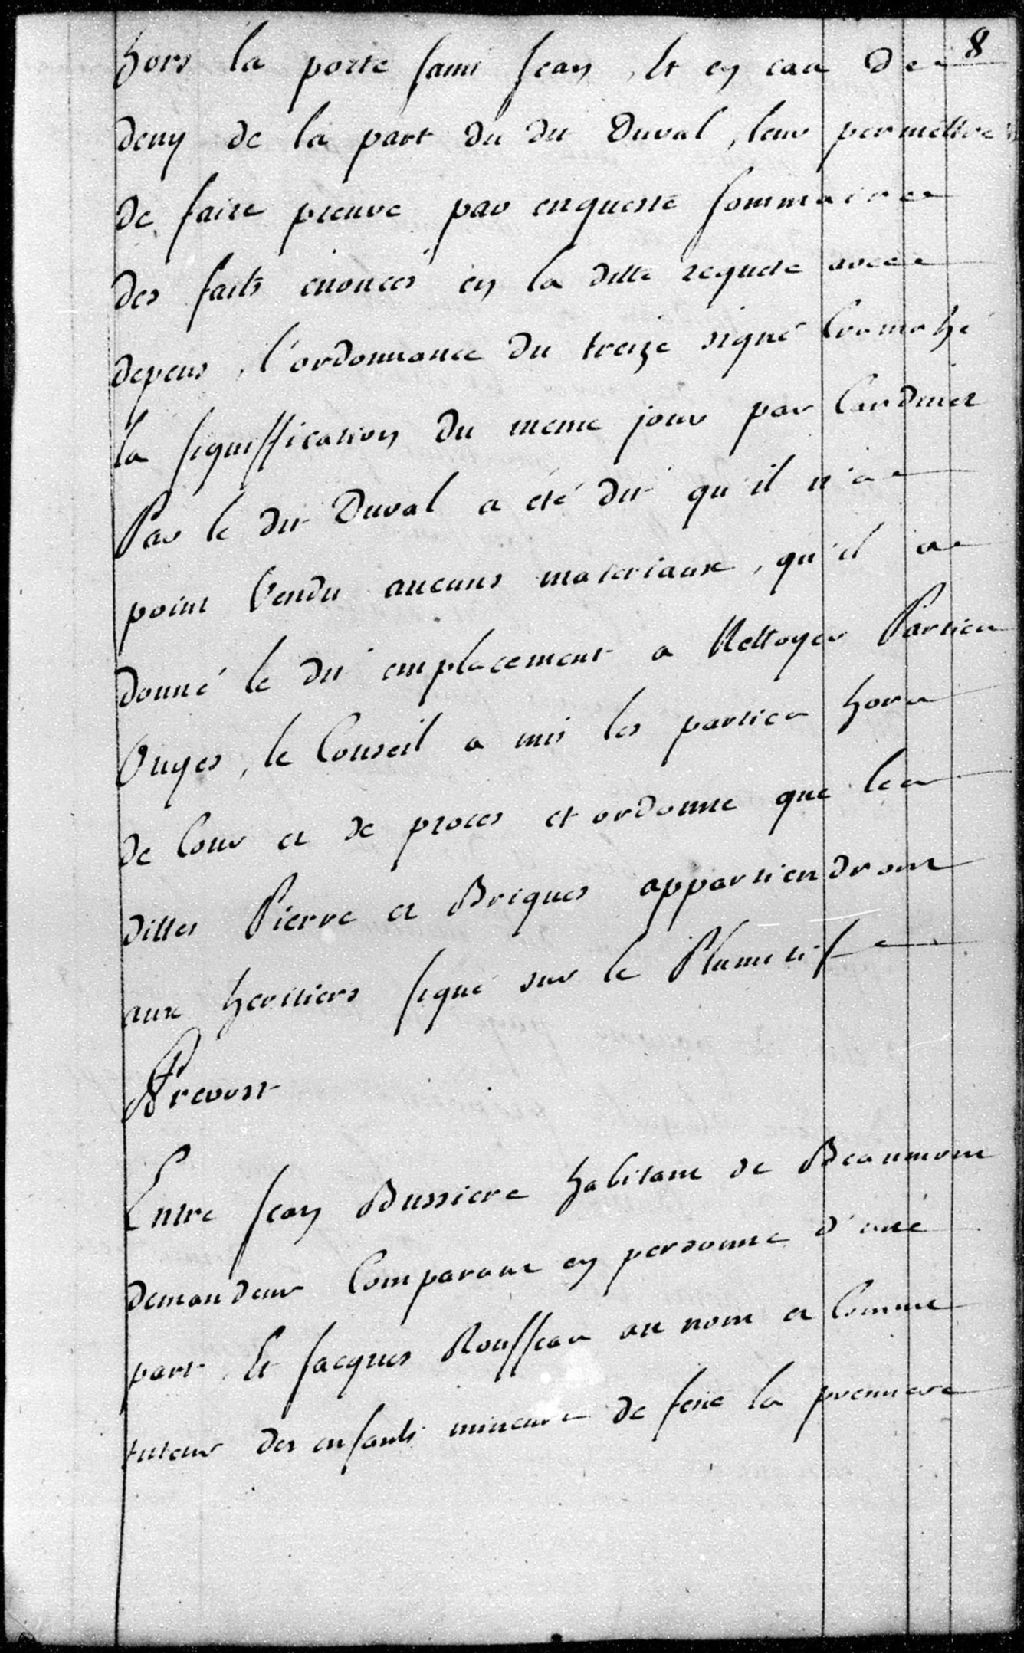 8
hors la porte saint Jean, Et en cas de
deny de la part du dit Duval, leur permettre
de faire preuve par enqueste sommaire
des faits enoncés en la ditte requete avec
depens, l'ordonnance du treize signé Cramahé
la signiffication du meme jour par Cardinet
Par le dit Duval a été dit qu'il n'a
point Vendu aucuns materiaux, qu'il a
donné le dit emplacement a Nettoyer Parties
Ouyes, le Conseil a mis les parties hors
de Cour et de proces et ordonne que les
dittes Pierre et Briques appartiendront
aux heritiers signé sur le Plumitif
Prevost
Entre Jean Bussiere habitant de Beaumont
demandeur Comparant en personne d'une
part, Et Jacques Rousseau au nom et Comme
tuteur des enfants mineurs de feue la premiere